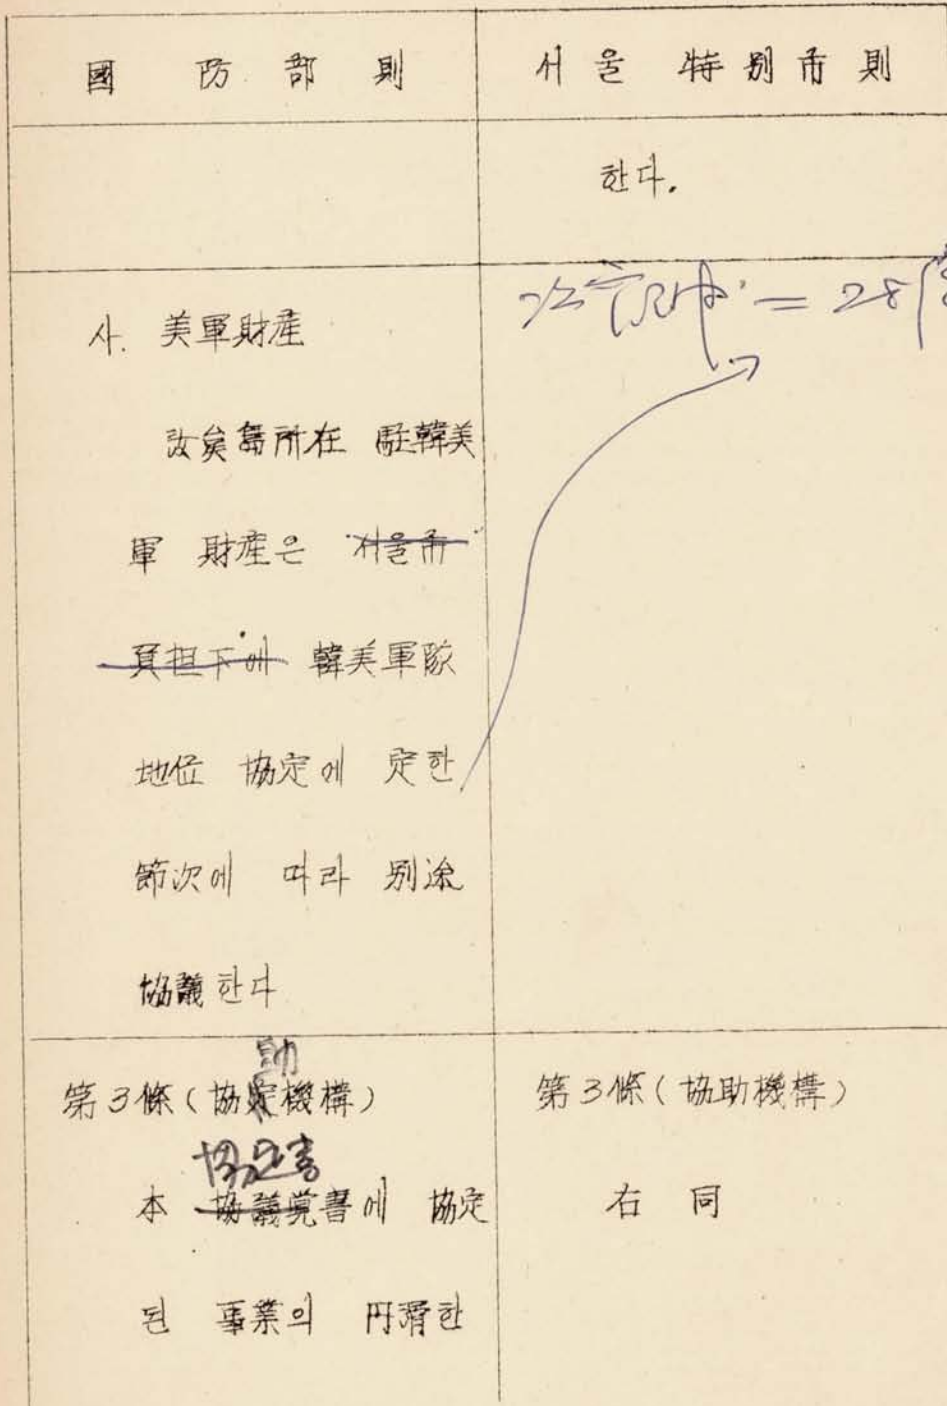 國防部則
서울 特別市則
한다.
사. 美軍財產
汝矣島所在 駐韓美
軍 財產은 서울市
負担下에 韓美軍隊
地位 協定에 定한
節次에 따라 別途
協議한다
助
第3條(協定機構)
協定書
本 協議覚書에 協定
된 事業의 円滑한
第3條(協助機構)
右同